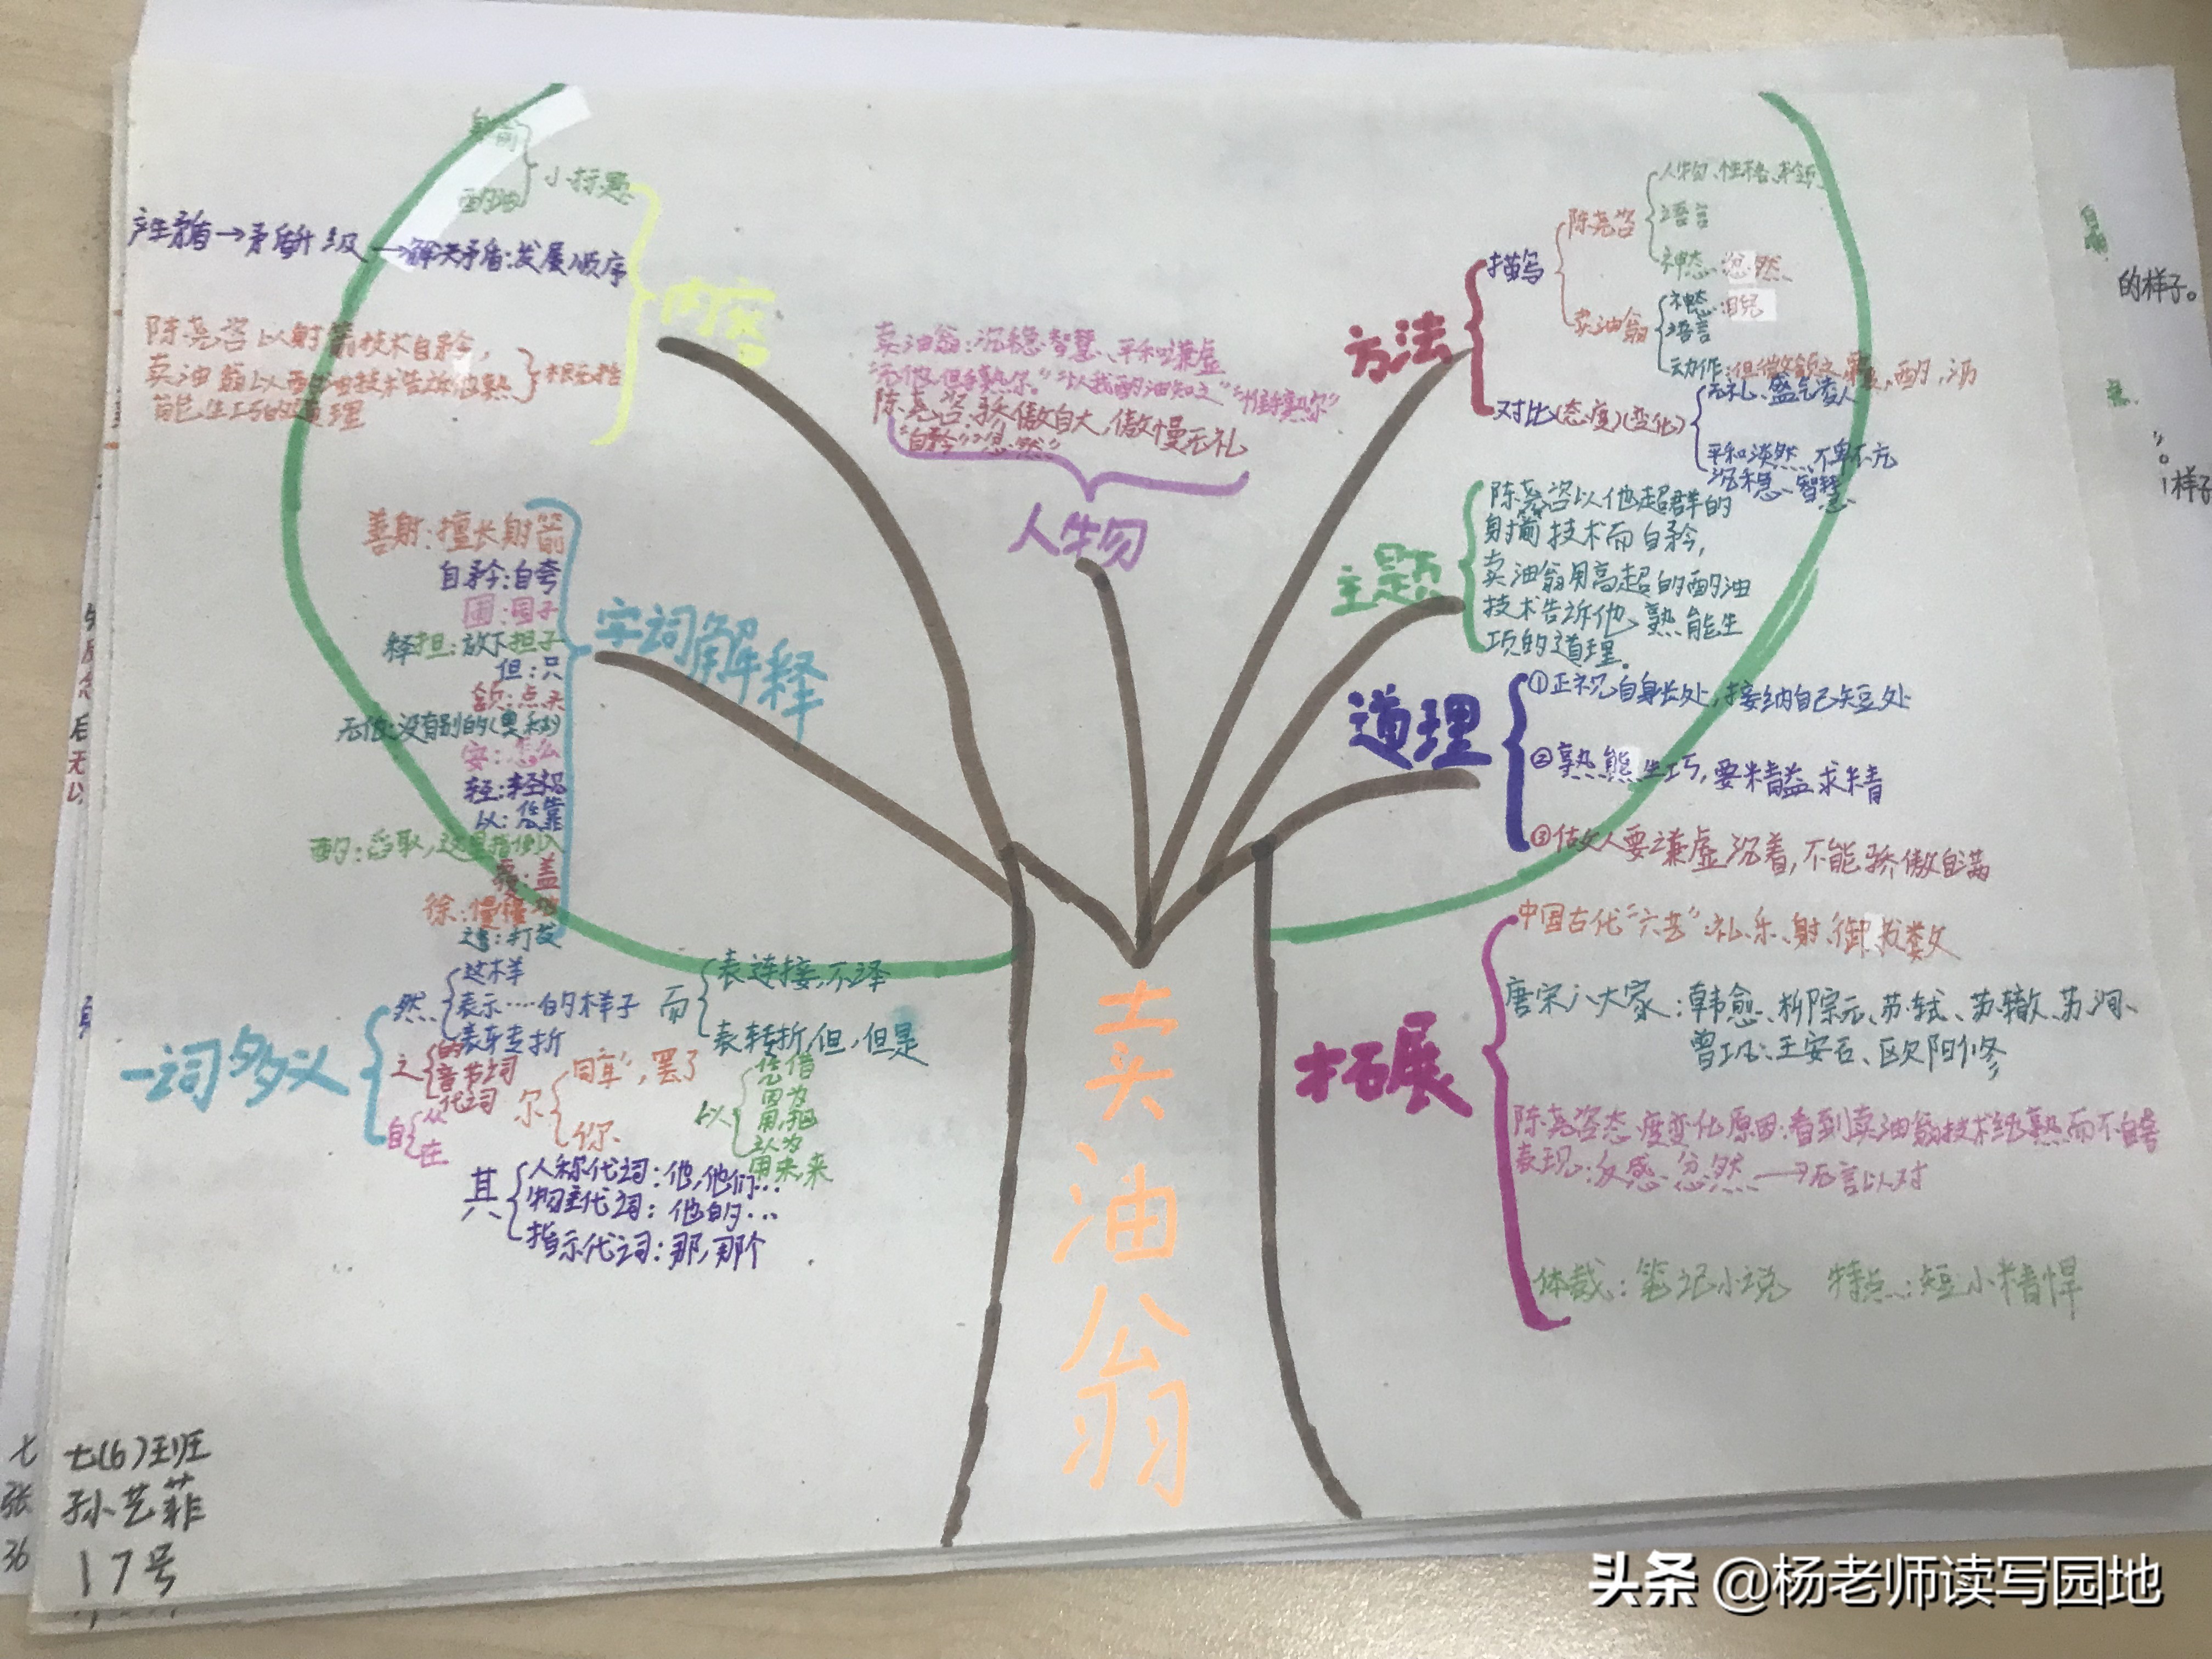 卖油翁
内容
小标题
射箭
酌油
产生矛盾→矛盾升级→解决矛盾:发展顺序
陈尧咨以射箭技术自矜,
卖油翁以酌油技术告诉他熟
能生巧的道理
字词解释
善射:擅长射箭
自矜:自夸
圃:园子
释担:放下担子
但:只
颔:点头
无他:没有别的(奥秘)
安:怎么
轻:轻视
以:凭靠
酌:舀取,这里指倒入
覆:盖
徐:慢慢地
遣:打发
一词多义
然
这样
表示……的样子
表转折
而
表连接,不译
表转折,但,但是
之
的
音节词
代词
尔
同"耳",罢了
你
以
凭借
因为
用,把
认为
用来,来
自
从
在
其
人称代词:他,他们…
物主代词:他的…
指示代词:那,那个
人物
卖油翁:沉稳智慧、平和谦虚
"无他,但手熟尔。""以我酌油知之""惟手熟尔"
陈尧咨:骄傲自大,傲慢无礼
"自矜""忿然"
方法
描写
陈尧咨
人物、性格、
语言
神态:忿然、
卖油翁
神态:睨
语言
动作:但微颔之,覆,酌,沥
对比(态度)(变化)
无礼、盛气凌人
平和淡然、不卑不亢
沉稳、智慧
主题
陈尧咨以他超群的
射箭技术而自矜,
卖油翁用高超的酌油
技术告诉他,熟能生
巧的道理。
道理
①正视自身长处,接纳自己短处
②熟能生巧,要精益求精
③做人要谦虚沉着,不能骄傲自满
拓展
中国古代"六艺":礼、乐、射、御、书、数
唐宋八大家:韩愈、柳宗元、苏轼、苏辙、苏洵、
曾巩、王安石、欧阳修
陈尧咨态度变化原因:看到卖油翁技术纯熟而不自夸
表现:反感、忿然→无言以对
体裁:笔记小说 特点:短小精悍
七(6)班
孙艺菲
17号
七
张
36
的样子。
样子
头条 @杨老师读写园地